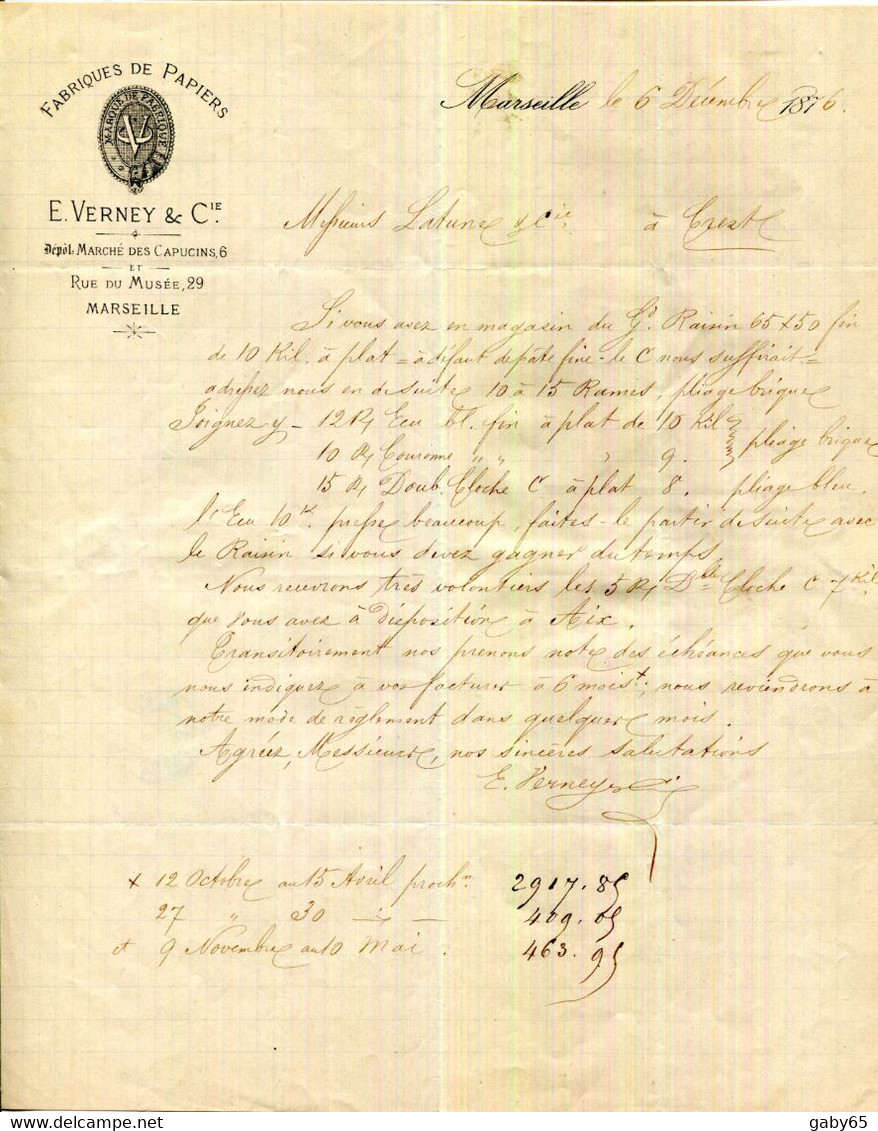 FABRIQUES DE PAPIERS
MARQUE DE FABRIQUE
E. VERNEY & CIE.
Dépôt: MARCHÉ DES CAPUCINS, 6
ET
RUE DU MUSÉE, 29
MARSEILLE
Marseille le 6 Décembre 1876.
Messieurs Latune & Cie. à Crest
Si vous avez en magasin du Gd. Raisin 65 x 50 fin
de 10 Kil. à plat = à défaut de pâte fine - le C nous suffirait =
adressez nous en de suite 10 à 15 Rames, pliage brique
Joignez y - 12 Rs Ecu bl. fin à plat de 10 Kil
10 Rs Couronne " " " 9. pliage brique
15 Rs Doub. Cloche C à plat 8. pliage bleu.
l'Ecu 10k. presse beaucoup, faites-le partir de suite avec
le Raisin si vous devez gagner du temps.
Nous recevrons très volontiers les 5 Rs Dble Cloche C 7 Kil.
que vous avez à disposition à Aix.
Transitoirement nos prenons note des échéances que vous
nous indiquez à vos factures à 6 mois +; nous reviendrons à
notre mode de règlement dans quelques mois.
Agréez, Messieurs, nos sincères salutations
E. Verney & Cie
+ 12 Octobre au 15 Avril prochn. 2917.85
27 " 30 — 409.05
et 9 Novembre au 10 Mai. 463.95
gaby65